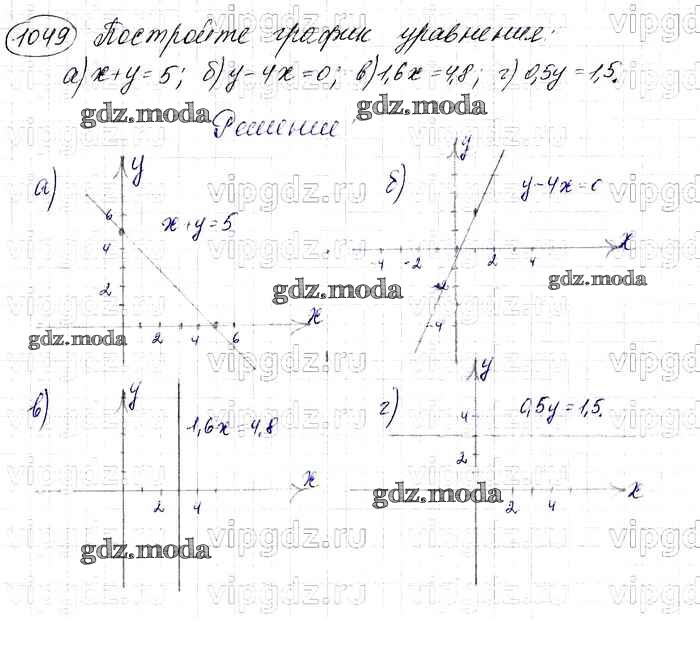 1049 Постройте график уравнения:
а) x+y=5; б) y-4x=0; в) 1,6x=4,8; г) 0,5y=1,5.
gdz.moda gdz.moda
Решение
а) y б) y
y-4x=0
6 x+y=5
4 x
-4 -2 2 4
gdz.moda
2 gdz.moda -2
x
gdz.moda 2 4 6 -4
y y
в) г) 0,5y=1,5.
1,6x=4,8 4
2
x gdz.moda x
2 4 2 4
gdz.moda
vipgdz.ru vipgdz.ru vipgdz.ru